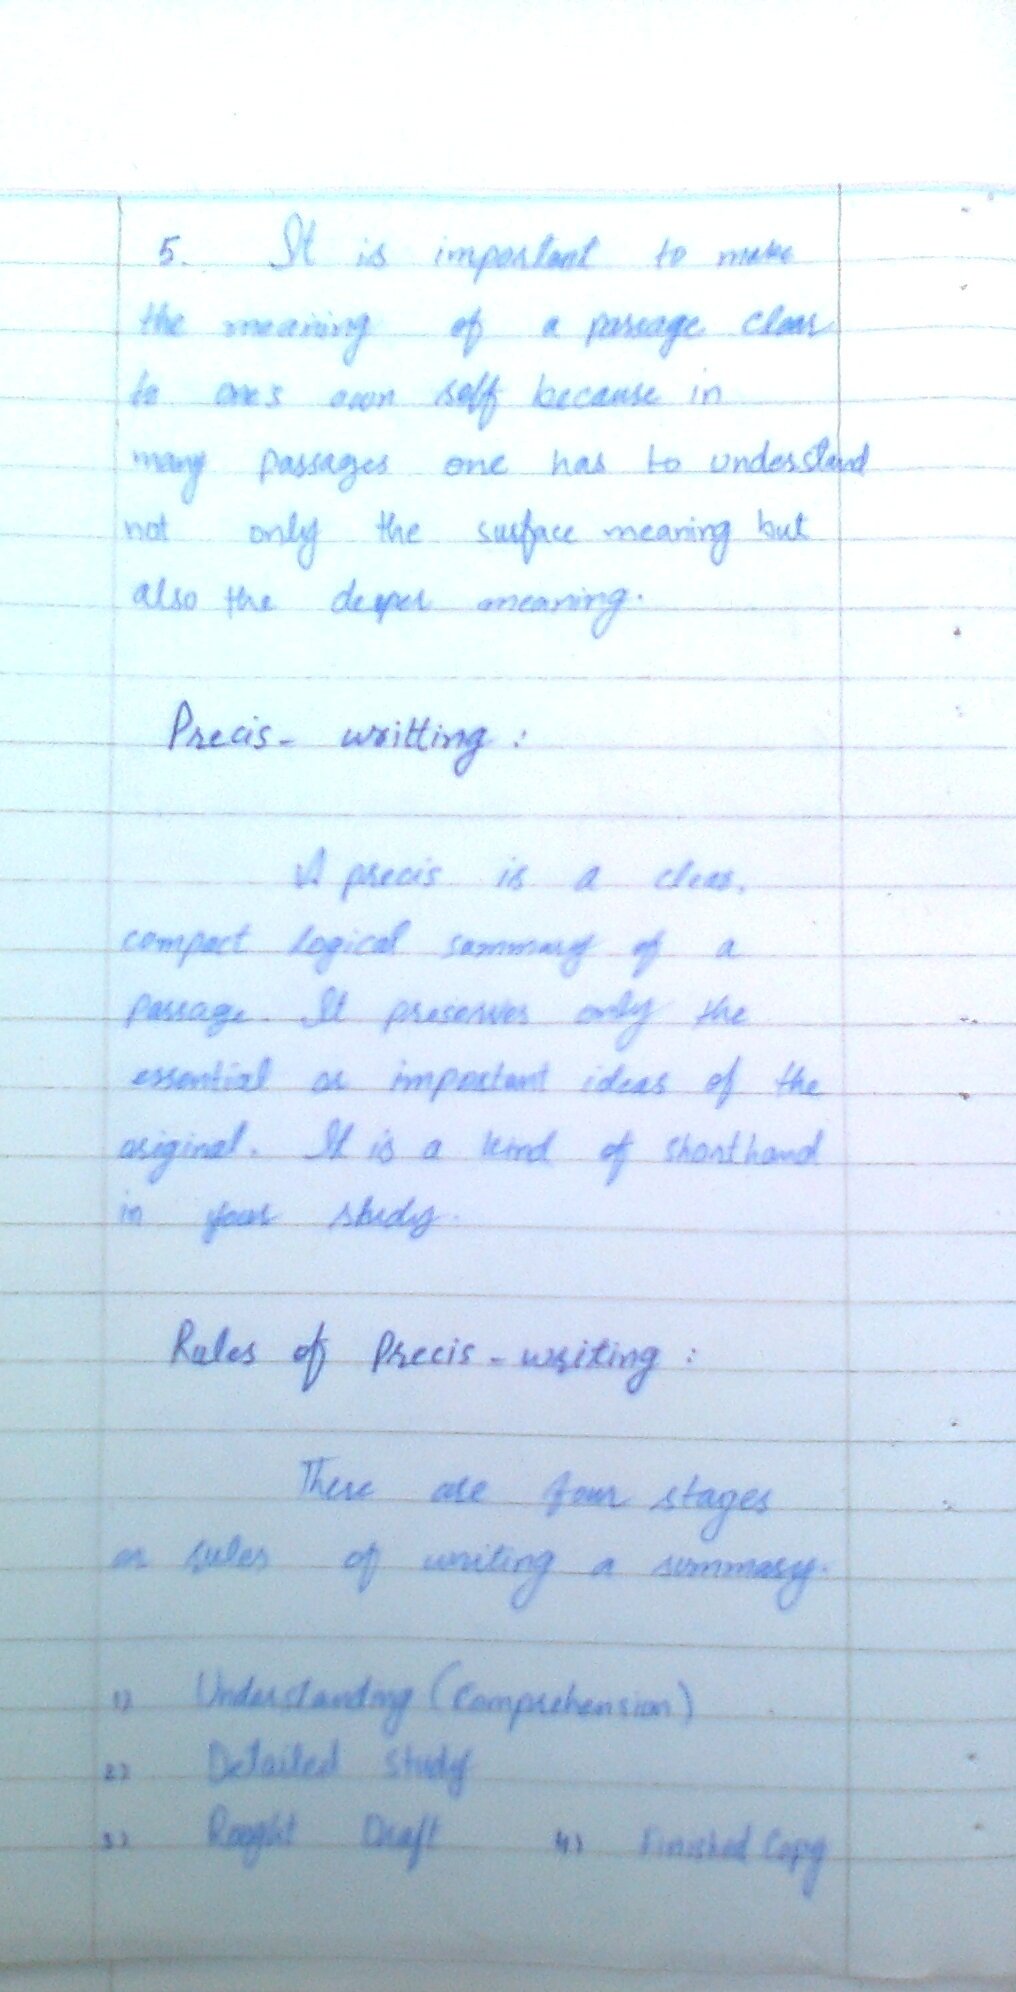 5. It is important to make
the meaning of a passage clear
to one's own self because in
many passages one has to understand
not only the surface meaning but
also the deeper meaning.
Precis - writting :
A precis is a clear,
compact logical summary of a
passage. It preserves only the
essential or important ideas of the
original. It is a kind of shorthand
in your study.
Rules of Precis - writing :
There are four stages
or rules of writing a summary.
1) Understanding (Comprehension)
2) Detailed study
3) Rought Draft 4) Finished Copy